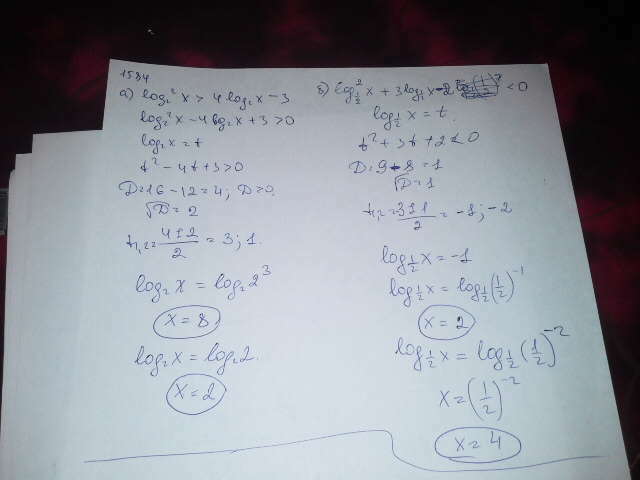 1584
а) log₂² x > 4 log₂ x − 3
log₂² x − 4 log₂ x + 3 > 0
log₂ x = t
t² − 4t + 3 > 0
D = 16 − 12 = 4; D > 0.
√D = 2
t₁,₂ = (4 ± 2)/2 = 3; 1.
log₂ x = log₂ 2³
x = 8
log₂ x = log₂ 2.
x = 2
б) log²_{1/2} x + 3 log_{1/2} x + 2 < 0
log_{1/2} x = t.
t² + 3t + 2 < 0
D = 9 − 8 = 1
√D = 1
t₁,₂ = (−3 ± 1)/2 = −1; −2
log_{1/2} x = −1
log_{1/2} x = log_{1/2} (1/2)⁻¹
x = 2
log_{1/2} x = log_{1/2} (1/2)⁻²
x = (1/2)⁻²
x = 4